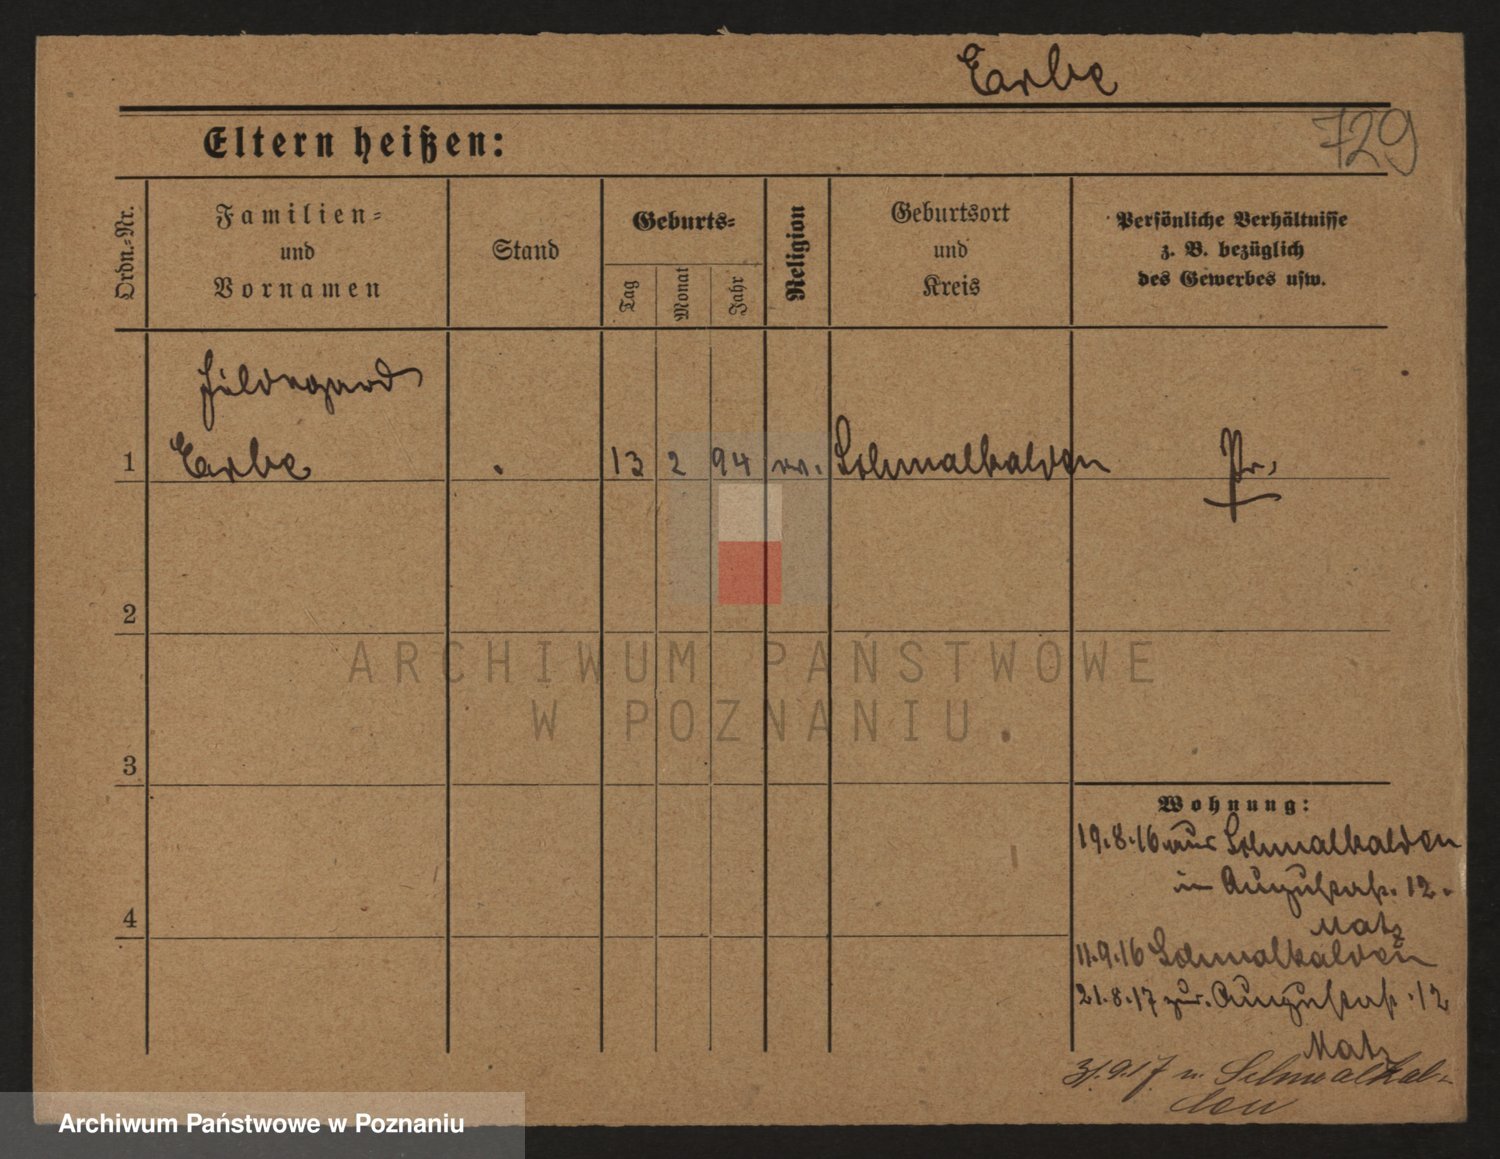 Erbe
729
Eltern heißen:
Ordn.-Nr.
Familien-
und
Vornamen
Stand
Geburts-
Tag
Monat
Jahr
Religion
Geburtsort
und
Kreis
Persönliche Verhältnisse
z. B. bezüglich
des Gewerbes usw.
Hildegard
1 Erbe 13 2 94 ev. Schmalkalden Pr.
2
3
4
ARCHIWUM PAŃSTWOWE
W POZNANIU.
Wohnung:
19.8.16 aus Schmalkalden
in Augustastr. 12.
Matz
11.9.16 Schmalkalden
21.8.17 zur. Augustastr. 12
Matz
31.9.17 n. Schmalkal-
den
Archiwum Państwowe w Poznaniu